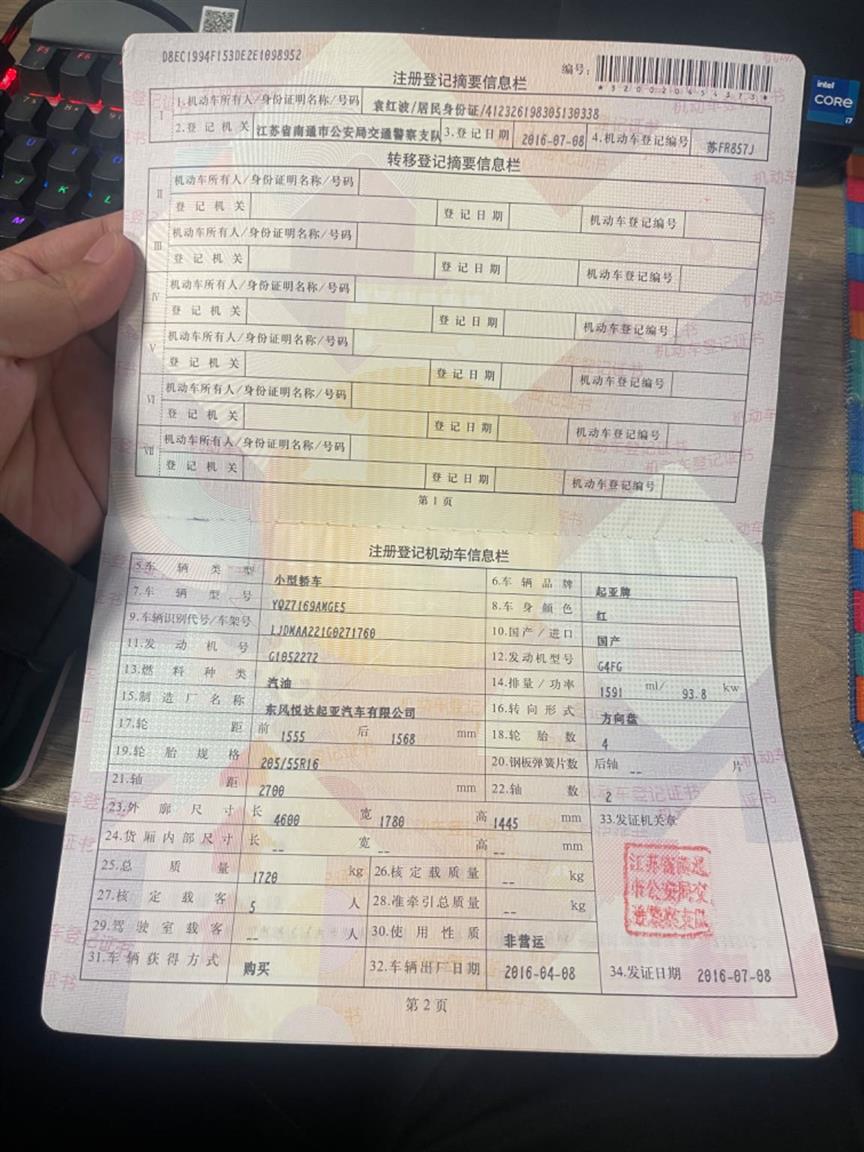 D8EC1994F153DE2E1098952
注册登记摘要信息栏
编号:
*320020454373*
I
1.机动车所有人/身份证明名称/号码 袁红波/居民身份证/412326198305130338
2.登记机关 江苏省南通市公安局交通警察支队 3.登记日期 2016-07-08 4.机动车登记编号 苏FR857J
转移登记摘要信息栏
II 机动车所有人/身份证明名称/号码
登记机关 登记日期 机动车登记编号
III 机动车所有人/身份证明名称/号码
登记机关 登记日期 机动车登记编号
IV 机动车所有人/身份证明名称/号码
登记机关 登记日期 机动车登记编号
V 机动车所有人/身份证明名称/号码
登记机关 登记日期 机动车登记编号
VI 机动车所有人/身份证明名称/号码
登记机关 登记日期 机动车登记编号
VII 机动车所有人/身份证明名称/号码
登记机关 登记日期 机动车登记编号
第1页
注册登记机动车信息栏
5.车辆类型 小型轿车 6.车辆品牌 起亚牌
7.车辆型号 YQZ7169AMGE5 8.车身颜色 红
9.车辆识别代号/车架号 LJDMAA221G0271760 10.国产/进口 国产
11.发动机号 G1052272 12.发动机型号 G4FG
13.燃料种类 汽油 14.排量/功率 1591 ml/ 93.8 kw
15.制造厂名称 东风悦达起亚汽车有限公司 16.转向形式 方向盘
17.轮距 前 1555 后 1568 mm 18.轮胎数 4
19.轮胎规格 205/55R16 20.钢板弹簧片数 后轴 -- 片
21.轴距 2700 mm 22.轴数 2
23.外廓尺寸 长 4600 宽 1780 高 1445 mm 33.发证机关章
24.货厢内部尺寸 长 -- 宽 -- 高 -- mm
25.总质量 1720 kg 26.核定载质量 -- kg
27.核定载客 5 人 28.准牵引总质量 -- kg
29.驾驶室载客 -- 人 30.使用性质 非营运
31.车辆获得方式 购买 32.车辆出厂日期 2016-04-08 34.发证日期 2016-07-08
江苏省南通
市公安局交
通警察支队
第2页
intel
CORE
i7